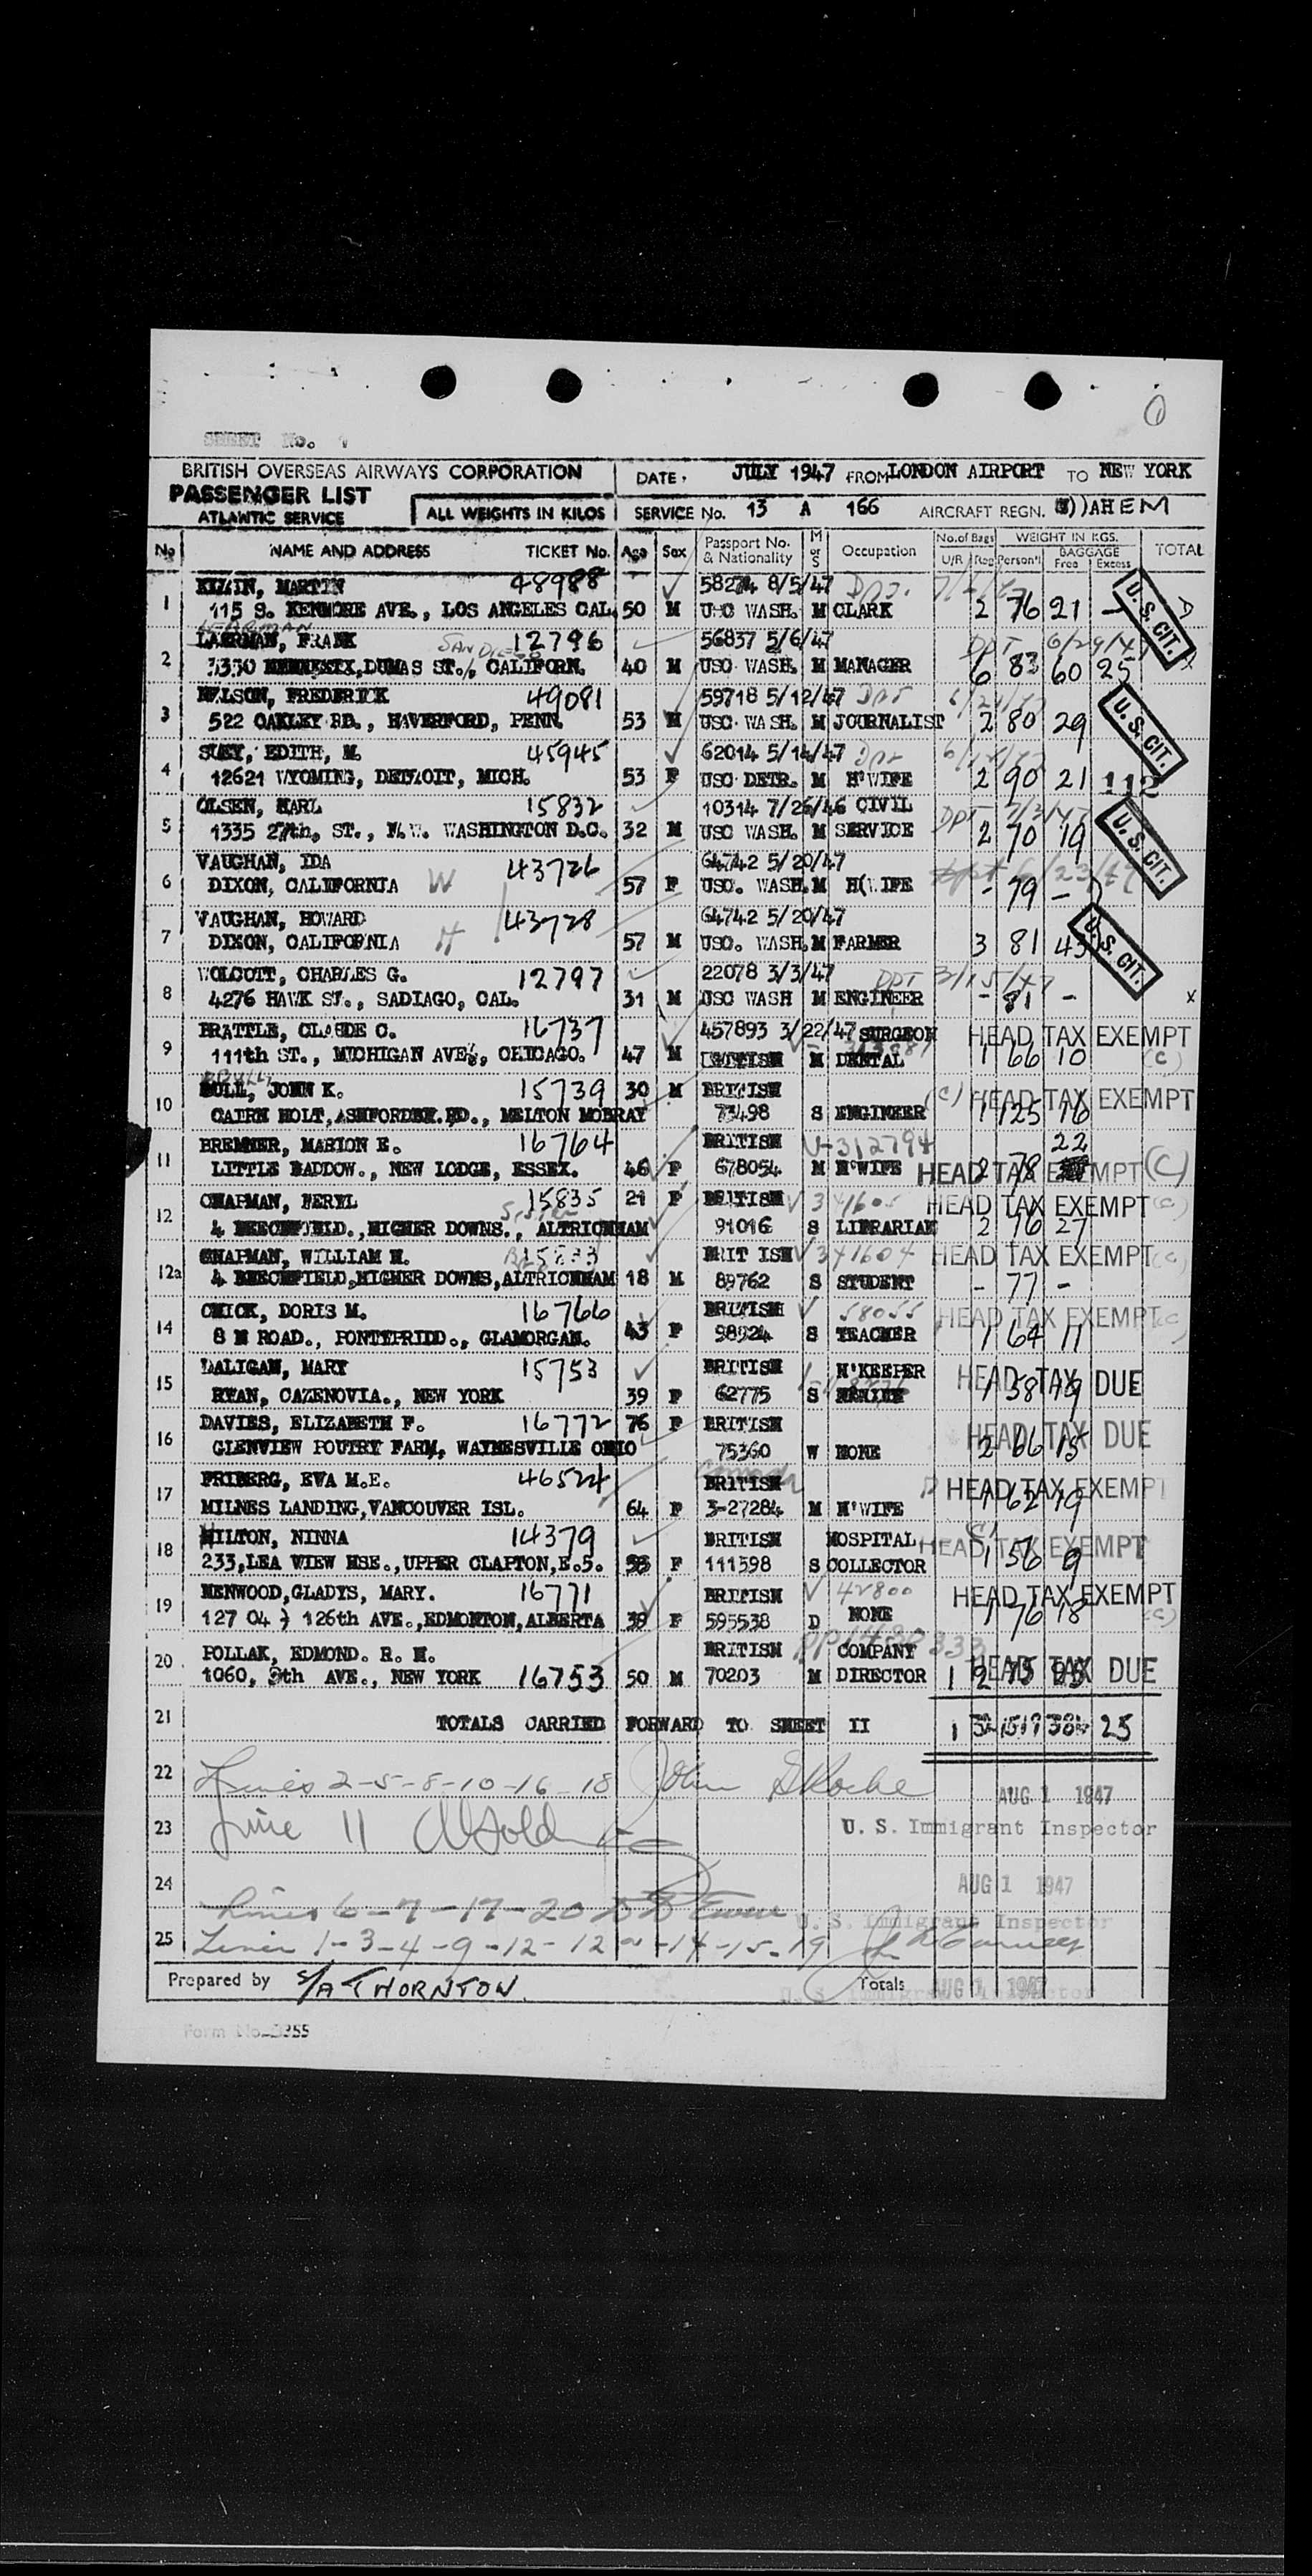 SHEET No. 1
BRITISH OVERSEAS AIRWAYS CORPORATION DATE. JULY 1947 FROM LONDON AIRPORT TO NEW YORK
PASSENGER LIST
ATLANTIC SERVICE ALL WEIGHTS IN KILOS SERVICE No. 13 A 166 AIRCRAFT REGN. AHEM
No NAME AND ADDRESS TICKET No. Age Sex Passport No. & Nationality M or S Occupation No. of Bags U/R Reg WEIGHT IN KGS. Person'l BAGGAGE Free Excess TOTAL
1 MARTIN 48988 58274 8/5/47
115 S. KENMORE AVE., LOS ANGELES CAL. 50 M USC WASH. M CLARK 2 76 21 - U. S. CIT.
LEARMAN
2 FRANK SAN DIEGO 12796 56837 5/6/47 DPT 6/29/47
DUMAS ST., CALIFORN. 40 M USC WASH. M MANAGER 6 83 60 25
3 NELSON, FREDERICK 49081 59718 5/12/47
522 OAKLEY RD., HAVERFORD, PENN. 53 M USC WASH. M JOURNALIST 2 80 29 U. S. CIT.
4 EDITH, M. 45945 62014 5/14/47
12621 WYOMING, DETROIT, MICH. 53 F USC DETR. M H'WIFE 2 90 21 112
5 OLSEN, KARL 15832 10314 7/26/46 CIVIL DPT
1335 27th, ST., N.W. WASHINGTON D.C. 32 M USC WASH. M SERVICE 2 70 19 U. S. CIT.
6 VAUGHAN, IDA 43726 64742 5/20/47
DIXON, CALIFORNIA W 57 F USC. WASH. M H(WIFE - 79 -
7 VAUGHAN, HOWARD 43728 64742 5/20/47
DIXON, CALIFORNIA H 57 M USC. WASH. M FARMER 3 81 43 U. S. CIT.
8 WOLCOTT, CHARLES G. 12797 22078 3/3/47 DPT 3/15/47
4276 HAWK ST., SADIAGO, CAL. 31 M USC WASH M ENGINEER - 81 - x
9 BRATTLE, CLAUDE C. 16737 457893 3/22/47 SURGEON HEAD TAX EXEMPT
111th ST., MICHIGAN AVE., CHICAGO. 47 M BRITISH M DENTAL 1 66 10 (C)
10 JOHN K. 15739 30 M BRITISH (C) HEAD TAX EXEMPT
CAIRN HOLT, ASHFORDBY.RD., MELTON MOBRAY 73498 S ENGINEER 1 125 16
11 BREMNER, MARION E. 16764 BRITISH V-312794 22
LITTLE BADDOW., NEW LODGE, ESSEX. 46 F 678054 M H'WIFE 2 78 HEAD TAX EXEMPT (C)
12 CHAPMAN, BERYL 15835 21 F BRITISH V 341605 HEAD TAX EXEMPT (C)
4 BEECHFIELD., HIGHER DOWNS., ALTRICNHAM 91016 S LIBRARIAN 2 76 27
12a CHAPMAN, WILLIAM H. 15833 BRIT ISH V 341604 HEAD TAX EXEMPT (C)
4 BEECHFIELD, HIGHER DOWNS, ALTRICNHAM 18 M 89762 S STUDENT - 77 -
14 CHICK, DORIS M. 16766 BRITISH V 58055 HEAD TAX EXEMPT (C)
8 M ROAD., PONTEPRIDD., GLAMORGAN. 43 F 98924 S TEACHER 1 64 11
15 DALIGAN, MARY 15753 BRITISH H'KEEPER HEAD TAX DUE
RYAN, CAZENOVIA., NEW YORK 39 F 62775 S 1 58 19
16 DAVIES, ELIZABETH F. 16772 76 F BRITISH HEAD TAX DUE
GLENVIEW POUTRY FARM, WAYNESVILLE OHIO 75360 W NONE 2 66 15
17 FRIBERG, EVA M.E. 46524 BRITISH HEAD TAX EXEMPT
MILNES LANDING, VANCOUVER ISL. 64 F 3-27284 M H'WIFE 1 62 19
18 HILTON, NINNA 14379 BRITISH HOSPITAL HEAD TAX EXEMPT
233, LEA VIEW HSE., UPPER CLAPTON, E.5. F 111598 S COLLECTOR 1 56 9
19 HENWOOD, GLADYS, MARY. 16771 BRITISH V 42800 HEAD TAX EXEMPT
127 04 126th AVE., EDMONTON, ALBERTA 39 F 595538 D NONE 1 76 18 (C)
20 POLLAK, EDMOND. R. H. BRITISH COMPANY
1060, 5th AVE., NEW YORK 16753 50 M 70203 M DIRECTOR 1 2 HEAD TAX DUE
21 TOTALS CARRIED FORWARD TO SHEET II 1 32 1517 25
22 Lines 2-5-8-10-16-18 John AUG 1 1947
23 Line 11 U. S. Immigrant Inspector
24 AUG 1 1947
Lines 6-7-17-20 U. S. Immigrant Inspector
25 Lines 1-3-4-9-12-12a-14-15-19
Prepared by S/A THORNTON. Totals AUG 1 1947
Form No. 355